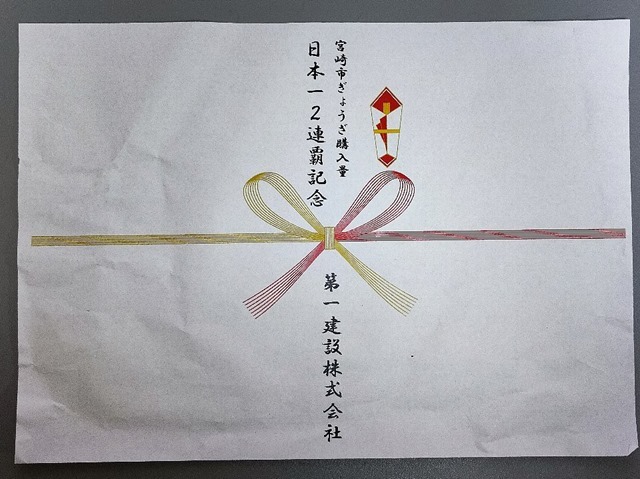 宮崎市ぎょうざ購入量
日本一２連覇記念
第一建設株式会社